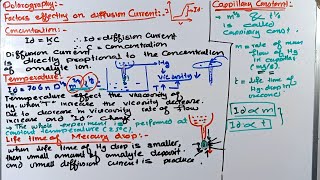 Polrography:-
Factors effecting on diffusion Current:-
Concentration:-
Id = KC
Id = diffusion Current
C = Concentration
Diffusion Current
is directly proportional to the Concentration
of analyte ion.
Temperature:-
Id = 706 n D
Hg
Viscosity
Temperature effect the viscosity of
Hg when "T" increase the viscosity decrease.
Due to decrease in viscosity rate of flow
increase and "Id" change.
→ The whole experiment is performed at
constant temperature (25°C).
Life time of Mercury drop:-
when life time of Hg drop is smaller,
then small amount of analyte deposit
and small diffusion current is produce.
Capillary Constant:-
m⅔ & t⅙
called
Capillary Const.
m = rate of mass
flow of Hg
t = life time of
Hg drop in
Id ∝ m
Id ∝ t